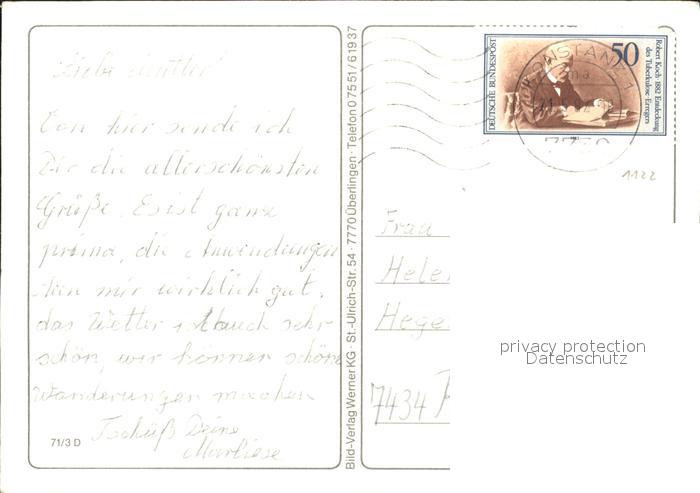 Liebe Mutter!
Von hier sende ich
Dir die allerschönsten
Grüße. Es ist ganz
prima, die Anwendungen
tun mir wirklich gut,
das Wetter ist auch sehr
schön, wir können schöne
Wanderungen machen
Tschüß Deine
Marliese
71/3 D
Bild-Verlag Werner KG · St.-Ulrich-Str. 54 · 7770 Überlingen · Telefon 0 75 51 / 6 19 37
DEUTSCHE BUNDESPOST
50
Robert Koch 1882 Entdeckung
des Tuberkulose-Erregers
KONSTANZ 1
1122
Frau
Hele
Hege
7434
privacy protection
Datenschutz